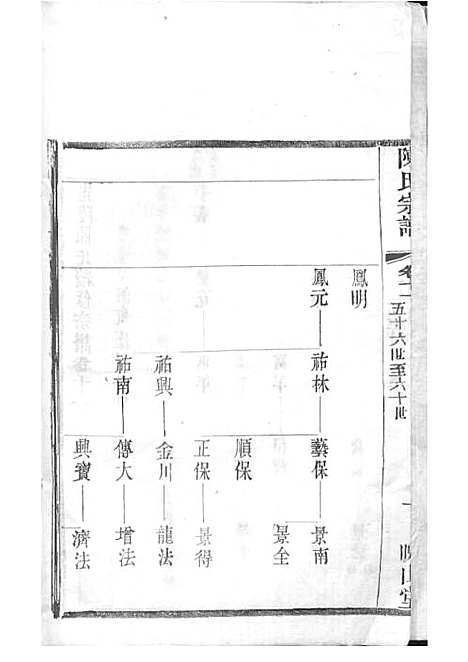 陳氏宗譜
卷十一
五十六世至六十世
一
鳳明
鳳元——祐林——藝保——景南
景全
順保
正保——景得
祐興——金川——龍法
祐南——傳大——增法
興寶——濟法